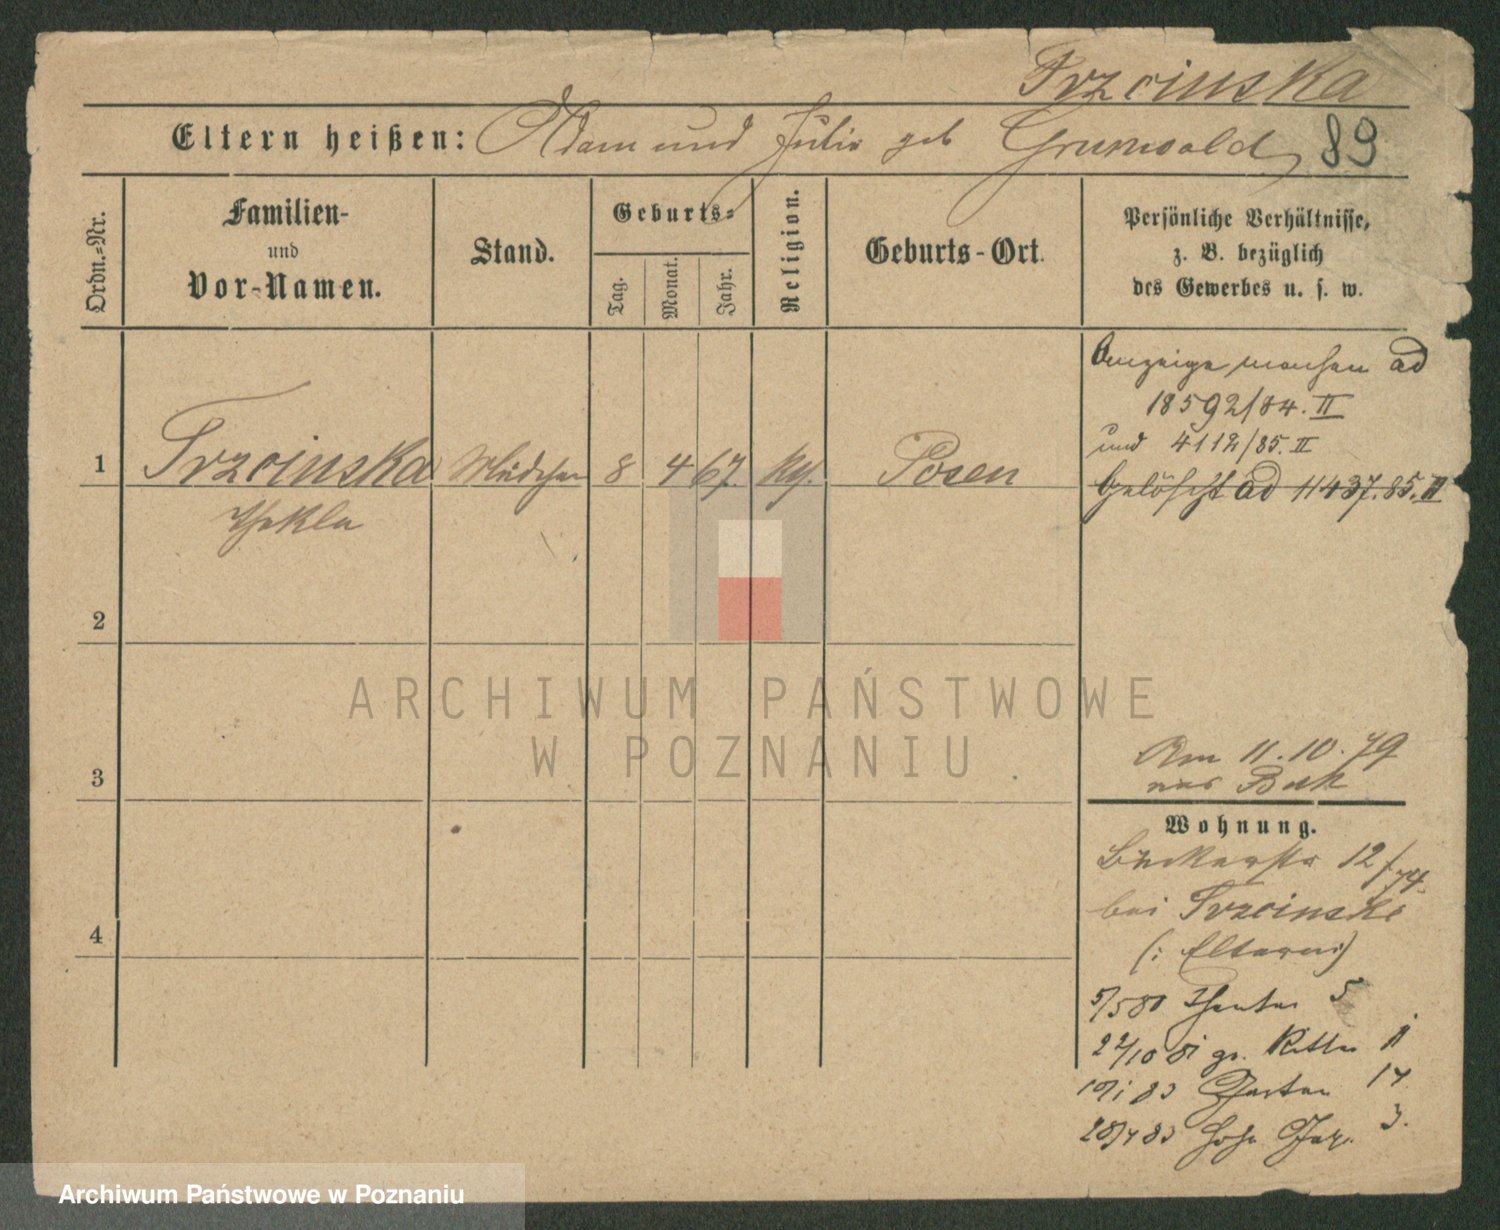 Trzcinska
Eltern heißen: Adam und Julie geb Grunwald 89
Ordn.-Nr.
Familien-
und
Vor-Namen.
Stand.
Geburts-
Tag.
Monat.
Jahr.
Religion.
Geburts-Ort.
Persönliche Verhältnisse,
z. B. bezüglich
des Gewerbes u. s. w.
1 Trzcinska Mädchen 8 4 67. kth. Posen
Thekla
2
3
4
Anzeige machen ad
18592/84. II
und 4112/85. II
Gelöscht ad 11437.85. II
Am 11.10.79
aus Buk
Wohnung.
Bäckerstr 12/74.
bei Trzcinski
(: Eltern :)
5/5 80 Theater 5
22/10 81 gr. Ritter
19/1 83 Garten 17
28/4 83 hohe 3.
ARCHIWUM PAŃSTWOWE
W POZNANIU
Archiwum Państwowe w Poznaniu